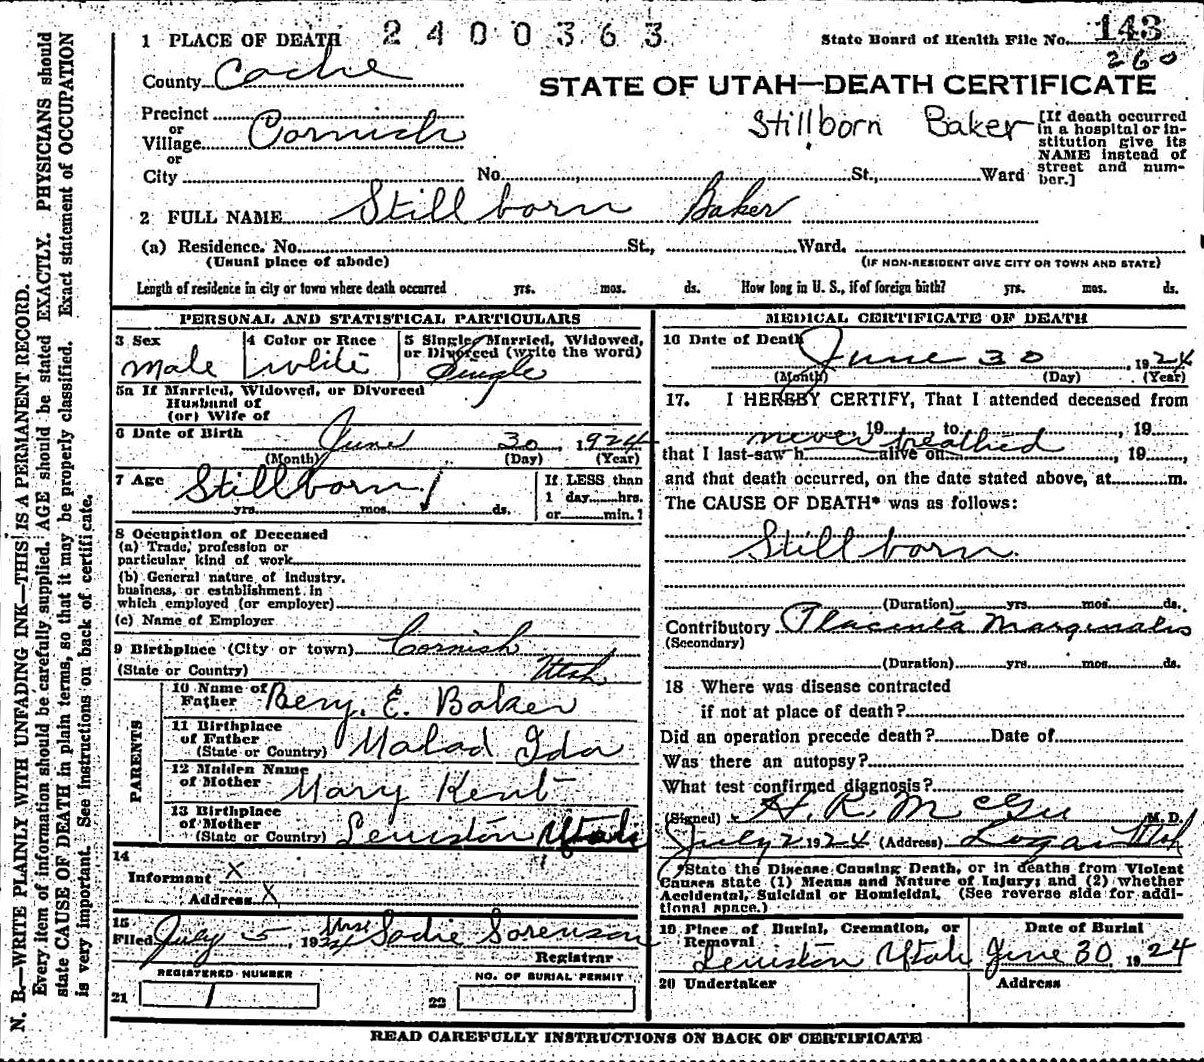 1 PLACE OF DEATH 2 4 0 0 3 6 3 State Board of Health File No. 143
260
County Cache
STATE OF UTAH—DEATH CERTIFICATE
Precinct
or
Village Cornish
or
City No. St., Ward
Stillborn Baker
[If death occurred
in a hospital or in-
stitution give its
NAME instead of
street and num-
ber.]
2 FULL NAME Still born Baker
(a) Residence. No. St., Ward.
(Usual place of abode) (IF NON-RESIDENT GIVE CITY OR TOWN AND STATE)
Length of residence in city or town where death occurred yrs. mos. ds. How long in U. S., if of foreign birth? yrs. mos. ds.
PERSONAL AND STATISTICAL PARTICULARS
3 Sex 4 Color or Race 5 Single, Married, Widowed,
or Divorced (write the word)
male white Single
5a If Married, Widowed, or Divorced
Husband of
(or) Wife of
6 Date of Birth June 30 1924
(Month) (Day) (Year)
7 Age Still born
yrs. mos. ds.
If LESS than
1 day hrs.
or min.?
8 Occupation of Deceased
(a) Trade, profession or
particular kind of work
(b) General nature of industry,
business, or establishment in
which employed (or employer)
(c) Name of Employer
9 Birthplace (City or town) Cornish
(State or Country) Utah
PARENTS
10 Name of
Father Benj. E. Baker
11 Birthplace
of Father
(State or Country) Malad Ida
12 Maiden Name
of Mother Mary Kent
13 Birthplace
of Mother
(State or Country) Lewiston Utah
14
Informant X
Address X
15
Filed July 5, 1924 Mrs Sadie Sorenson
Registrar
REGISTERED NUMBER NO. OF BURIAL PERMIT
21 1 22
MEDICAL CERTIFICATE OF DEATH
16 Date of Death June 30, 1924
(Month) (Day) (Year)
17. I HEREBY CERTIFY, That I attended deceased from
19 to , 19
never breathed
that I last saw h alive on , 19 ,
and that death occurred, on the date stated above, at m.
The CAUSE OF DEATH* was as follows:
Still born.
(Duration) yrs. mos. ds.
Contributory Placenta Marginalis
(Secondary)
(Duration) yrs. mos. ds.
18 Where was disease contracted
if not at place of death?
Did an operation precede death? Date of
Was there an autopsy?
What test confirmed diagnosis?
(Signed) H. R. McGee M. D.
July 2 1924 (Address) Logan Utah
*State the Disease Causing Death, or in deaths from Violent
Causes state (1) Means and Nature of Injury; and (2) whether
Accidental, Suicidal or Homicidal. (See reverse side for addi-
tional space.)
19 Place of Burial, Cremation, or
Removal
Date of Burial
Lewiston Utah June 30 1924
20 Undertaker Address
READ CAREFULLY INSTRUCTIONS ON BACK OF CERTIFICATE
N. B.—WRITE PLAINLY WITH UNFADING INK—THIS IS A PERMANENT RECORD.
Every item of information should be carefully supplied. AGE should be stated EXACTLY. PHYSICIANS should
state CAUSE OF DEATH in plain terms, so that it may be properly classified. Exact statement of OCCUPATION
is very important. See instructions on back of certificate.